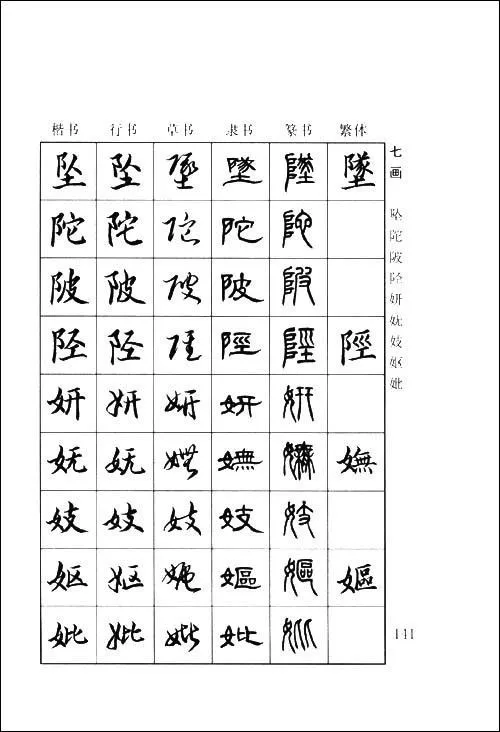 楷书 行书 草书 隶书 篆书 繁体
坠 坠 墜 墜 墜 墜
陀 陀 陀 陀 陀
陂 陂 陂 陂 陂
陉 陉 陉 陘 陘 陘
妍 妍 妍 妍 妍
妩 妩 嫵 嫵 嫵 嫵
妓 妓 妓 妓 妓
妪 妪 嫗 嫗 嫗 嫗
妣 妣 妣 妣 妣
七画
坠陀陂陉妍妩妓妪妣
141